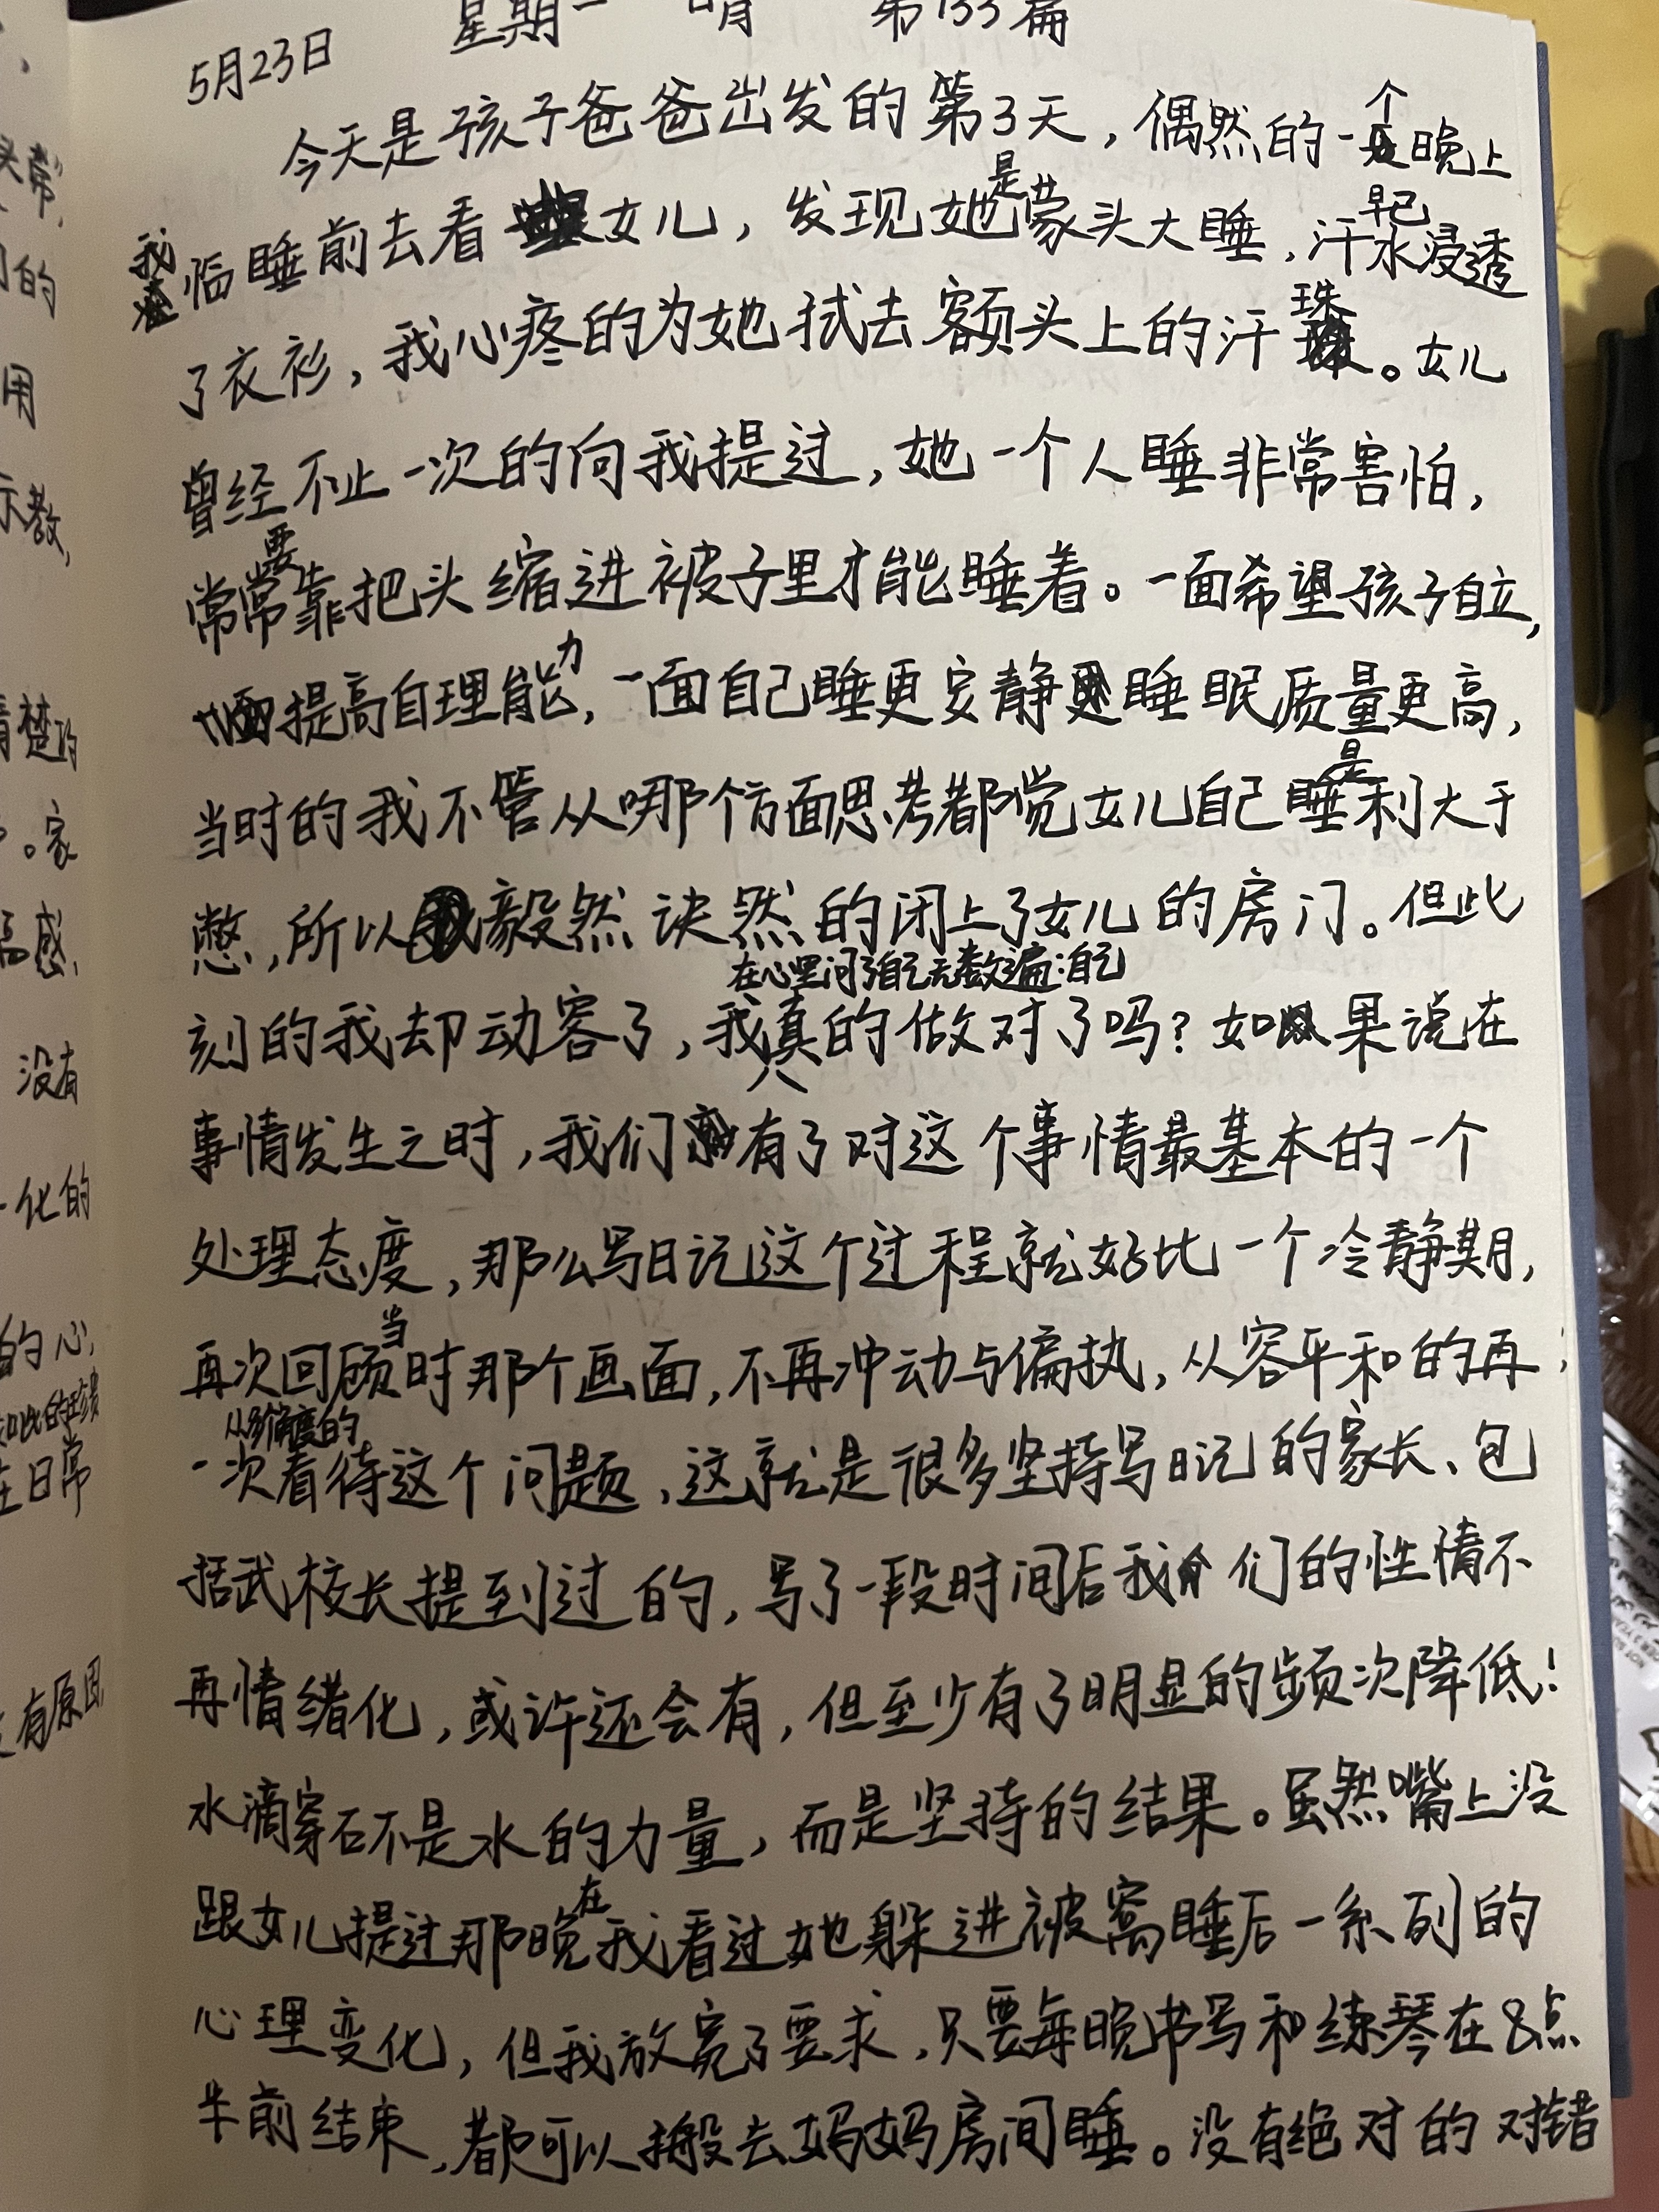 5月23日 星期一 晴 第133篇
今天是孩子爸爸出发的第3天，偶然的一个晚上
我临睡前去看女儿，发现她是蒙头大睡，汗水早已浸透
了衣衫，我心疼的为她拭去额头上的汗珠。女儿
曾经不止一次的向我提过，她一个人睡非常害怕，
常常要靠把头缩进被子里才能睡着。一面希望孩子自立，
提高自理能力，一面自己睡更安静睡眠质量更高，
当时的我不管从哪个方面思考都觉女儿自己睡是利大于
憋，所以毅然诀然的闭上了女儿的房门。但此
刻的我却动容了，我在心里问了自己无数遍：自己真的做对了吗？如果说在
事情发生之时，我们有了对这个事情最基本的一个
处理态度，那么写日记这个过程就好比一个冷静期，
再次回顾当时那个画面，不再冲动与偏执，从容平和的再
一次从多个角度的看待这个问题，这就是很多坚持写日记的家长、包
括武校长提到过的，写了一段时间后我们的性情不
再情绪化，或许还会有，但至少有了明显的频次降低！
水滴穿石不是水的力量，而是坚持的结果。虽然嘴上没
跟女儿提过那晚在我看过她躲进被窝睡后一系列的
心理变化，但我放宽了要求，只要每晚书写和练琴在8点
半前结束，都可以搬去妈妈房间睡。没有绝对的对错
常
的
用
示教，
清楚的
。家
感，
没有
化的
的心，
如此的珍贵
在日常
有原因